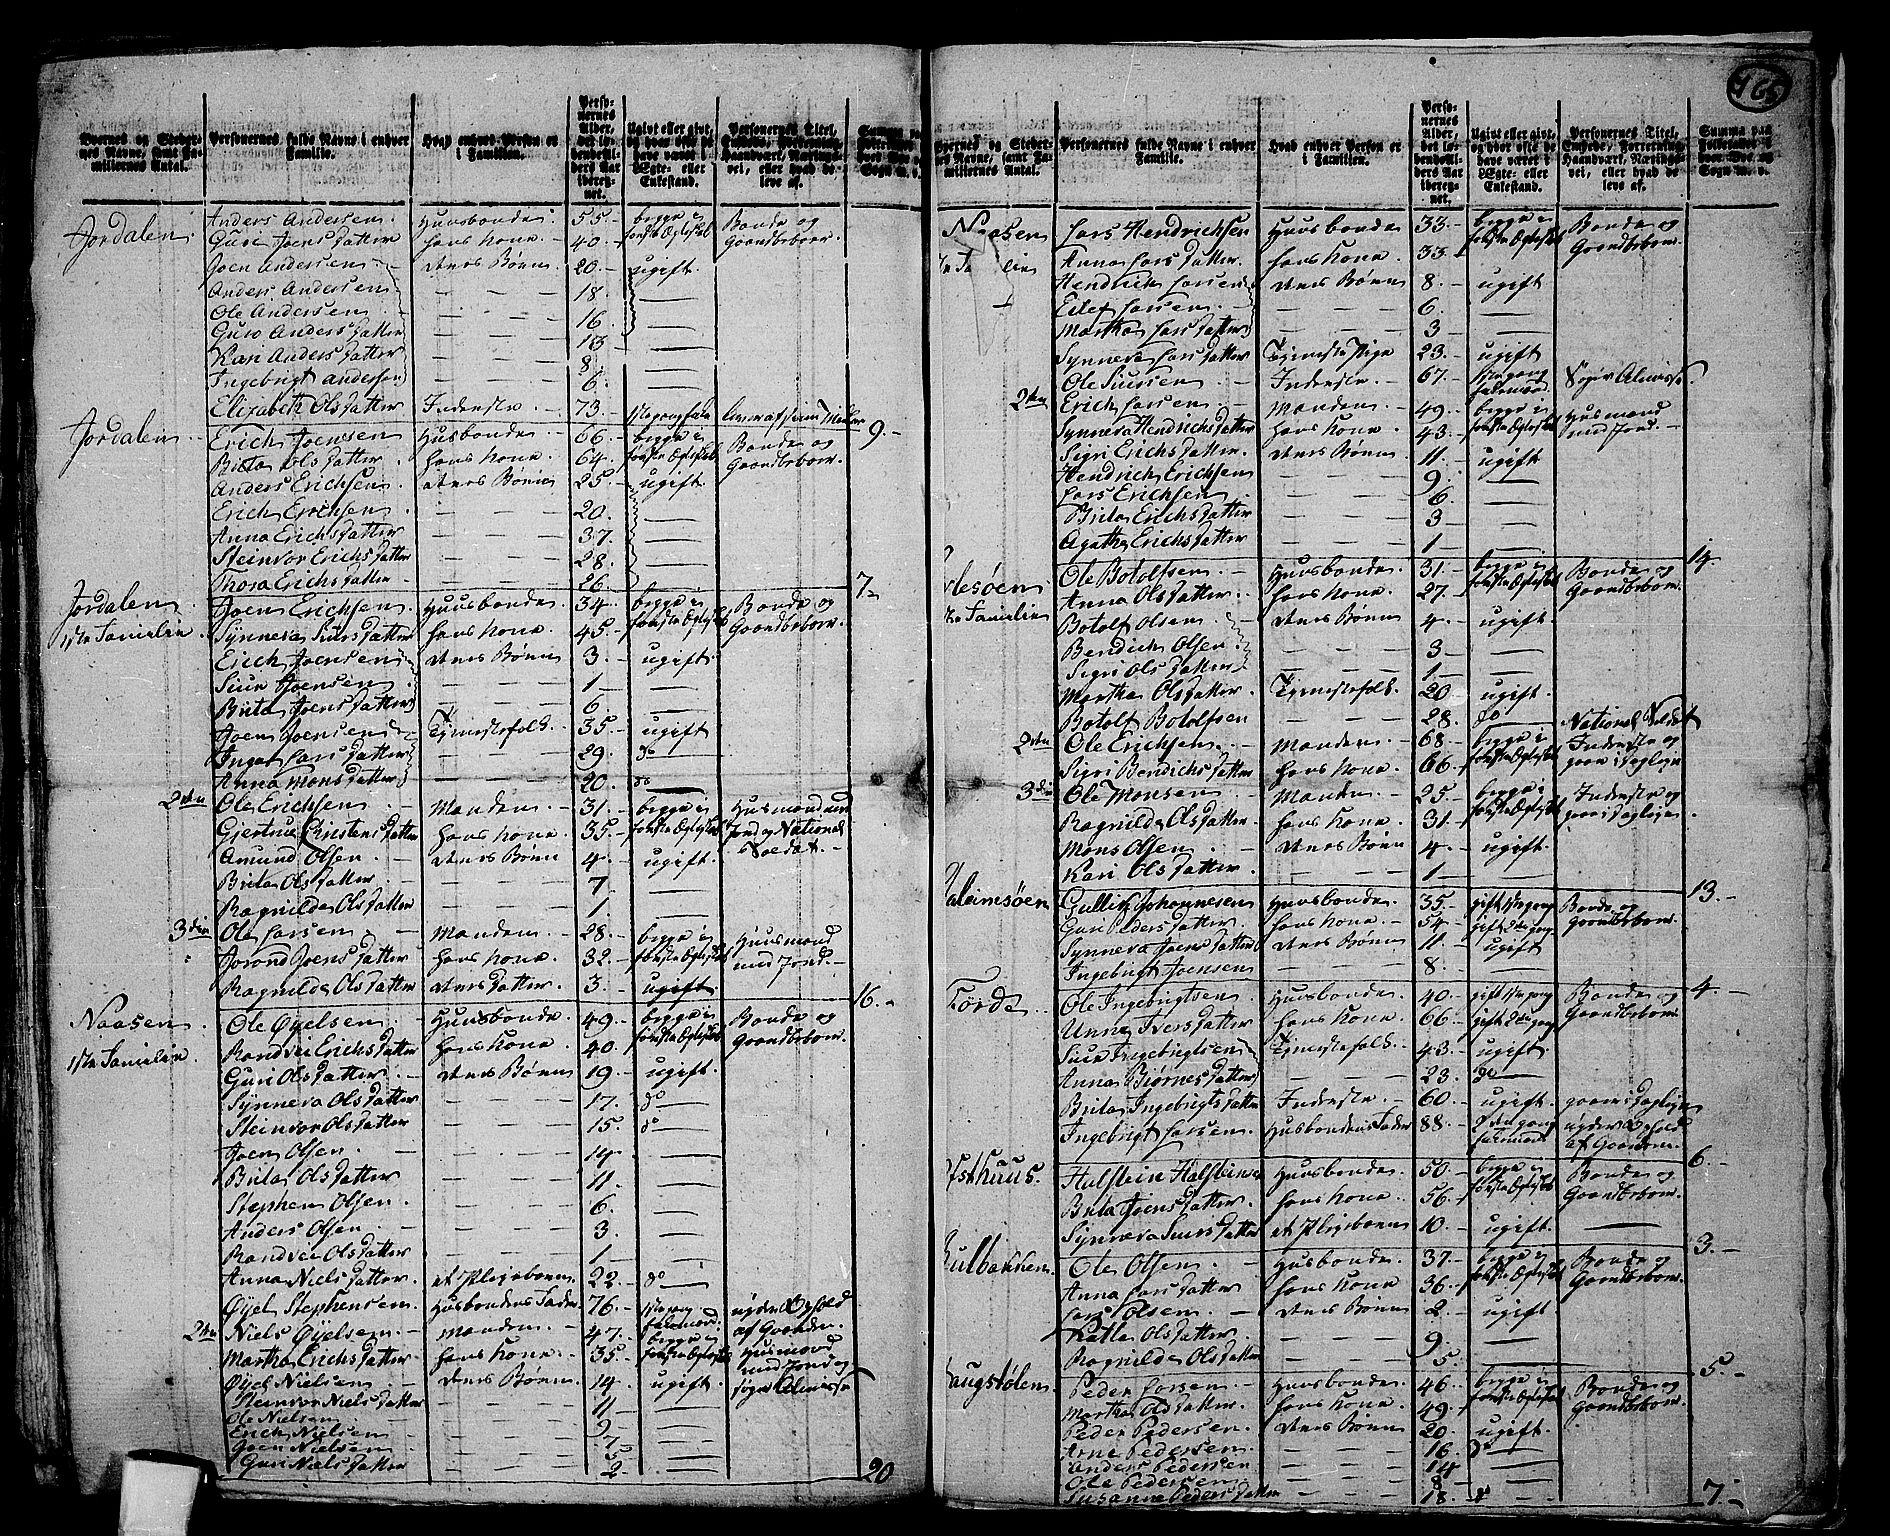 166
Byernes og Steder-
nes Navne, samt Fa-
miliernes Antal.
Personernes fulde Navne i enhver
Familie.
Hvad enhver Person er
i Familien.
Perso-
nernes
Alder,
det lø-
bende Al-
ders Aar
iberegn-
net.
Ugivt eller givt,
og hvor ofte de
have været i
Ægte- eller
Enkestand.
Personernes Titel,
Embede, Forretning,
Haandværk, Nærings-
vei, eller hvad de
leve af.
Summa paa
Folketallet i
hver Bye og
Sogn m. v.
Jordalen Anders Andersen Huusbonde 55 begge i første Ægteskab Bonde og Gaardbeboer
Guro Joens Datter hans Kone 40
Joen Andersen deres Børn 20 ugift
Anders Andersen — — — 18 —
Ole Andersen — — — 16 —
Guro Anders Datter — — — 13 —
Kari Anders Datter — — — 8 —
Ingebrigt Andersen — — — 6 —
Elizabeth Ols Datter Inderste 73 9
Jordalen Erich Joensen Husbonde 66 begge i første Ægteskab Bonde og Gaardbeboer
Brita Ols Datter hans Kone 64
Anders Erichsen deres Børn 25 ugift
Erich Erichsen — — — 20 —
Anna Erichs Datter — — — 37 —
Steinvor Erichs Datter — — — 28 —
Thora Erichs Datter — — — 26 — 7
Jordalen Joen Erichsen Huusbonde 34 begge i første Ægteskab Bonde og Gaardbeboer
1ste Familie Synneva Siurs Datter hans Kone 45
Erich Joensen deres Børn 3 ugift
Siur Joensen — — — 1 —
Brita Joens Datter — — — 6 —
Joen Joensen Tjenestefolk 35 ugift
Inger Lars Datter — — — 29 do
Anna Mons Datter — — — 20 do
2den Ole Erichsen Manden 31 begge i første Ægteskab Husmand med Jord og National Soldat
Gjertrue Christens Datter hans Kone 35
Amund Olsen deres Børn 4 ugift
Brita Ols Datter — — — 7 —
Ragnilde Ols Datter — — — 1 —
3die Ole Larsen Manden 28 begge i første Ægteskab Huusmand med Jord
Jorand Joens Datter hans Kone 32
Ragnilde Ols Datter deres Datter 3 ugift 16
Naasen Ole Øyelsen Huusbonde 49 begge i første Ægteskab Bonde og Gaardbeboer
1ste Familie Randvei Erichs Datter hans Kone 40
Guri Ols Datter deres Børn 19 ugift
Synneva Ols Datter — — — 17 do
Steinvor Ols Datter — — — 15 do
Joen Olsen — — — 14 —
Brita Ols Datter — — — 11 —
Stephen Olsen — — — 6 —
Anders Olsen — — — 3 —
Randvei Ols Datter — — — 1 —
Anna Niels Datter et Plejebarn 22 do
Øyel Stephensen Husbondens Fader 76 nyder Ophold af Gaarden
2den Niels Øyelsen Manden 47 begge i første Ægteskab Husmand med Jord og
Martha Erichs Datter hans Kone 35
Øyel Nielsen deres Børn 14 ugift
Steinvor Niels Datter — — — 11 —
Ole Nielsen — — — 9 —
Erich Nielsen — — — 7 —
Joen Nielsen — — — 5 —
Guri Niels Datter — — — 2 — 20
Byernes og Steder-
nes Navne, samt Fa-
miliernes Antal.
Personernes fulde Navne i enhver
Familie.
Hvad enhver Person er
i Familien.
Perso-
nernes
Alder,
det lø-
bende Al-
ders Aar
iberegn-
net.
Ugivt eller givt,
og hvor ofte de
have været i
Ægte- eller
Enkestand.
Personernes Titel,
Embede, Forretning,
Haandværk, Nærings-
vei, eller hvad de
leve af.
Summa paa
Folketallet i
hver Bye og
Sogn m. v.
Naasen Lars Hendrichsen Huusbonde 33 begge i første Ægteskab Bonde og Gaardbeboer
Anna Lars Datter hans Kone 33
Hendrich Larsen deres Børn 8 ugift
Eilef Larsen — — — 6 —
Martha Lars Datter — — — 3 —
Synneva Lars Datter Tjeneste Pige 23 ugift
Ole Siursen Inderste 67
2den Erich Larsen Manden 49 begge i første Ægteskab Husmand med Jord
Synneva Hendrichs Datter hans Kone 43
Sigri Erichs Datter deres Børn 11 ugift
Hendrich Erichsen — — — 9 —
Lars Erichsen — — — 6 —
Brita Erichs Datter — — — 3 —
Agatha Erichs Datter — — — 1 — 14
Ole Botolfsen Huusbonde 31 begge i første Ægteskab Bonde og Gaardbeboer
Familie Anna Ols Datter hans Kone 27
Botolf Olsen deres Børn 4 ugift
Bendich Olsen — — — 3 —
Sigri Ols Datter — — — 1 —
Martha Ols Datter Tjenestefolk 20 ugift
Botolf Botolfsen — — — 28 do National Soldat
2den Ole Erichsen Manden 68 begge i første Ægteskab Inderste og
Sigri Bendichs Datter hans Kone 66
3die Ole Monsen Manden 25 begge i første Ægteskab Inderste og
Ragnilde Ols Datter hans Kone 31
Mons Olsen deres Børn 4 ugift
Kari Ols Datter — — — 1 — 13
Gullik Johannesen Huusbonde 35 gift 1ste gang Bonde og Gaardbeboer
Guri Peders Datter hans Kone 54 gift 2den gang
Synneva Joens Datter deres Børn 11 ugift
Ingebrigt Joensen — — — 8 — 4
Førde Ole Ingebrigtsen Huusbonde 40 gift 1ste gang Bonde og Gaardbeboer
Unna Ivers Datter hans Kone 66 gift 2den gang
Siur Ingebrigtsen Tjenestefolk 43 ugift
Anna Bjørnes Datter — — — 23 do
Brita Ingebrigts Datter Inderste 60 ugift
Ingebrigt Larsen Husbondens Fader 88 nyder Ophold af Gaarden 6
Halstein Halsteinsen Huusbonde 50 begge i første Ægteskab Bonde og Gaardbeboer
Brita Joens Datter hans Kone 56
Synneva Siurs Datter et Plejebarn 10 ugift — 3
Ole Olsen Huusbonde 37 begge i første Ægteskab Bonde og Gaardbeboer
Anna Lars Datter hans Kone 36
Lars Olsen deres Børn 2 ugift
Ols Datter — — — 9 —
Ragnilde Ols Datter — — — 5 — 5
Peder Larsen Huusbonde 46 begge i første Ægteskab Bonde og Gaardbeboer
Martha Ols Datter hans Kone 49
Peder Pedersen deres Børn 20 ugift
Arne Pedersen — — — 16 do
Anders Pedersen — — — 14 —
Ole Pedersen — — — 8 —
Susanne Peders Datter — — — 18 do 7